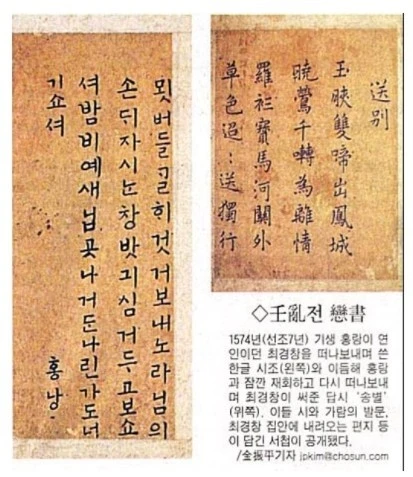 묏버들ᄀᆞᆯᄒᆡ것거보내노라님의
손ᄃᆡ자시ᄂᆞᆫ창밧긔심거두고보쇼
셔밤비예새닙곳나거든나린가도너
기쇼셔
홍낭
送別
玉頰雙啼出鳳城
曉鶯千囀爲離情
羅衫寶馬河關外
草色迢〻送獨行
◇壬亂전 戀書
1574년(선조7년) 기생 홍랑이 연
인이던 최경창을 떠나보내며 쓴
한글 시조(왼쪽)와 이듬해 홍랑
과 잠깐 재회하고 다시 떠나보내
며 최경창이 써준 답시 '송별'
(위쪽). 이들 시와 가람의 발문,
최경창 집안에 내려오는 편지 등
이 담긴 서첩이 공개됐다.
/金振平기자 jpkim@chosun.com